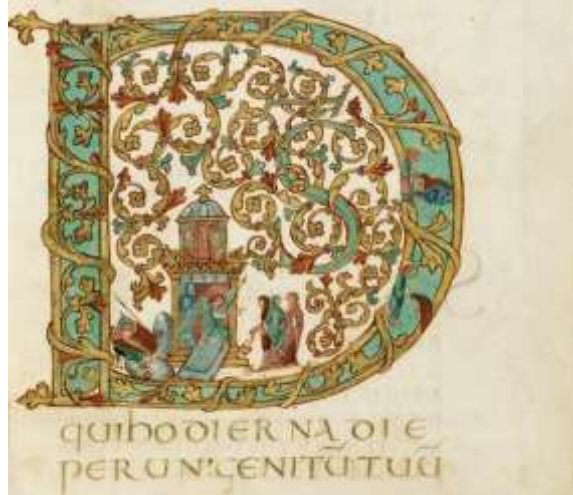 D
QUIHODIERNA DIE
PERUNIGENITŪTUŪ